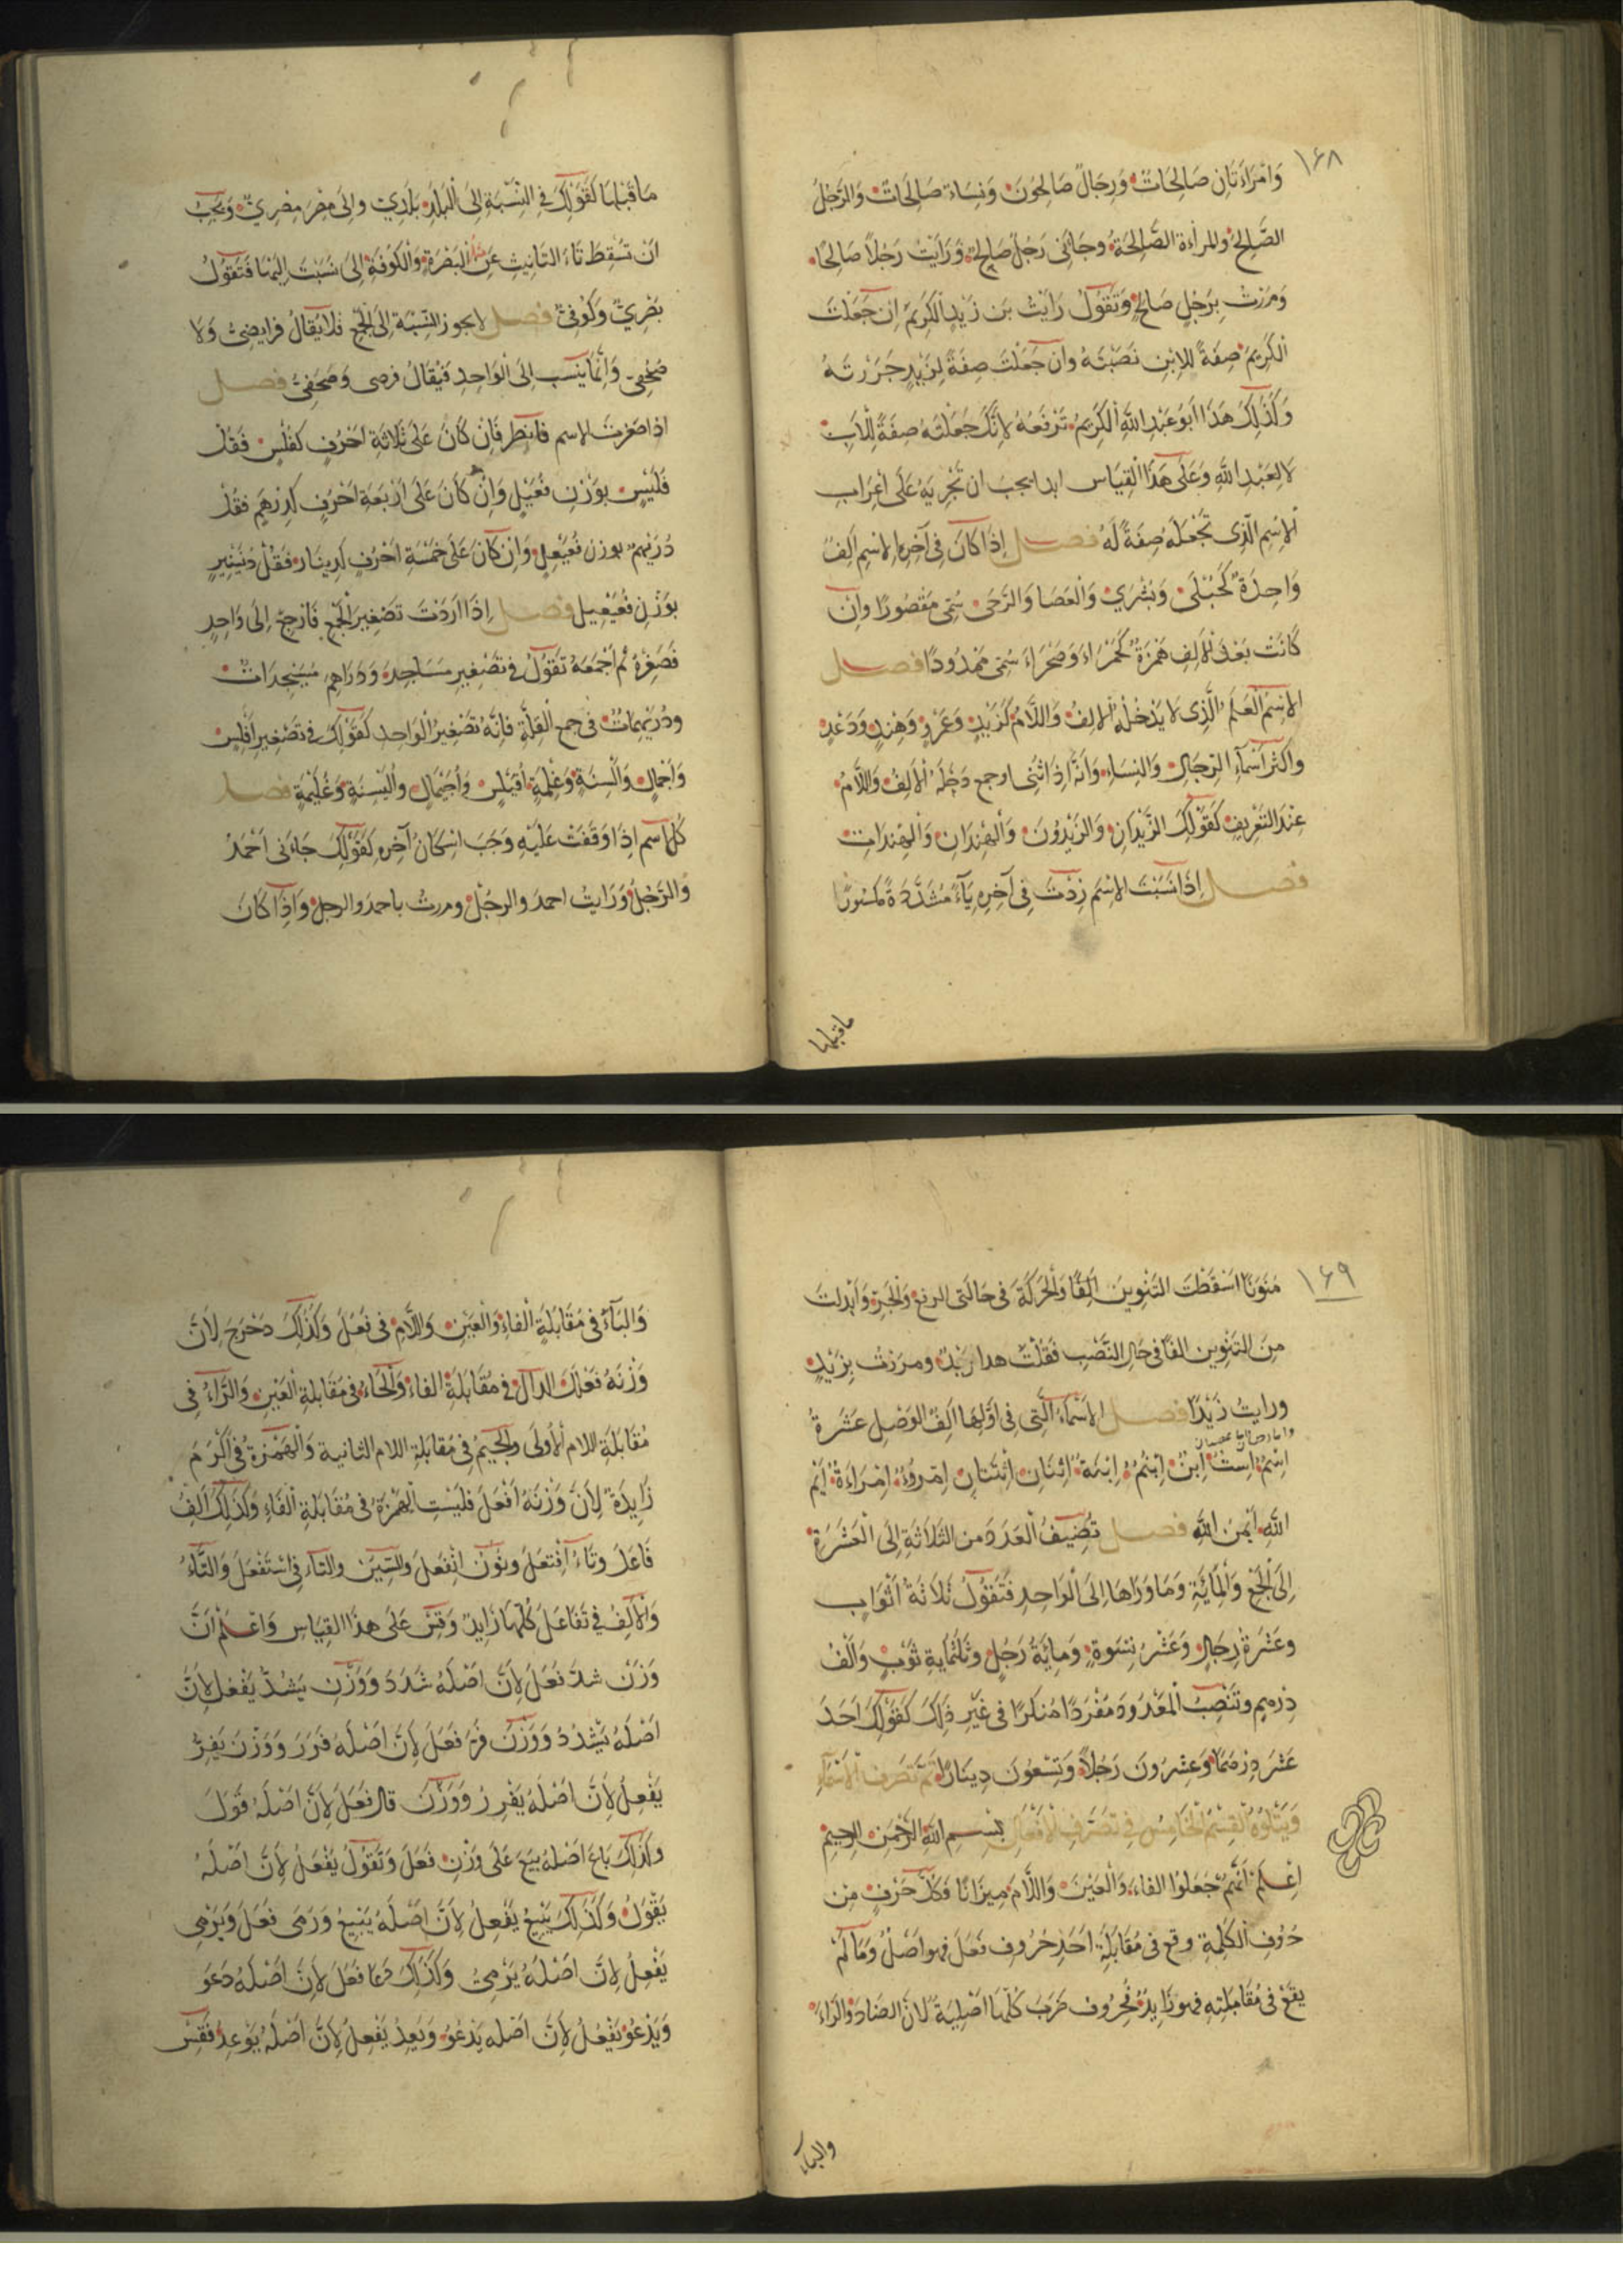 ١٦٨
وَامْرَاَتَانِ صَالِحَاتٌ وَرِجَالٌ صَالِحُونَ وَنِسَاءٌ صَالِحَاتٌ وَالرَّجُلُ
الصَّالِحُ والمرأة الصَّالِحَةُ وجَاءَنى رَجُلٌ صَالِحٌ وَرَاَيْتُ رَجُلاً صَالِحًا
وَمَرَرْتُ بِرَجُلٍ صَالِحٍ وَتَقُولُ رَاَيْتُ بن زَيْدٍ الْكَرِيمَ اِن جَعَلْتَ
الْكَرِيمَ صِفَةً لِلابْنِ نَصَبْتَهُ وان جَعَلْتَ صِفَةً لِزَيْدٍ جَرَرْتَهُ
وَكَذَلِكَ هَذَا اَبُو عَبْدِ اللَّهِ الْكَرِيمُ تَرْفَعُهُ لاَنَّكَ جَعَلْتَهُ صِفَةً لِلْاَبِ
لَا لِعَبْدِ اللَّهِ وَعَلَى هَذَا الْقِيَاس ابدا يجب ان تُجْرِيَهُ عَلَى اعْرَابِ
الْاِسْمِ الَّذِى تَجْعَلُهُ صِفَةً لَهُ فصل اِذَا كَانَ فِى آخِرِ الِاسْمِ اَلِفٌ
وَاحِدَةٌ كَحُبْلَى وَبُشْرَى وَالْعَصَا وَالرَّحَى سُمِّىَ مَقْصُورًا وَاِنْ
كَانَتْ بَعْدَ الْاَلِفِ هَمْزَةٌ كَحَمْرَاءَ وَصَحْرَاءَ سُمِّىَ مَمْدُودًا فصل
الاِسْمُ الْعَلَمُ الَّذِى لَا يَدْخُلُهُ الْاَلِفُ وَاللَّامُ كَزَيْدٍ وَعَمْرٍو وَهِنْدٍ وَدَعْدٍ
واكثر اَسْمَاءِ الرِّجَالِ وَالنِّسَاءِ وَاَنَّهُ اِذَا ثُنِّىَ او جمع دَخَلَهُ الْاَلِفُ وَاللَّامُ
عِنْدَ التَّعْرِيفِ كَقَوْلِكَ الزَّيْدَانِ وَالزَّيْدُونَ وَالْهِنْدَانِ وَالْهِنْدَاتِ
فصل اِذَا نَسَبْتَ الاِسْمَ زِدْتَ فِى آخِرِهِ يَاءً مُشَدَّدَةً مَكْسُورًا
ماقبلها
مَا قَبْلَهَا كَقَوْلِكَ فِى النِّسْبَةِ اِلَى الْبَلَدِ بَلَدِىٌّ وَاِلَى مِصْرٍ مِصْرِىٌّ وَيَجِبُ
اَنْ تُسْقِطَ تَاءَ التَّانِيثِ عَنِ الْبَصْرَةِ وَالْكُوفَةِ اِلَى نَسَبْتَ اِلَيْهَا فَتَقُولُ
بَصْرِىٌّ وَكُوفِىٌّ فصل لا يجوز النِّسْبَةُ اِلَى الْجَمْعِ فَلَا يُقَالُ فرايضِىٌّ وَلَا
صُحُفِىٌّ وَاِنَّمَا يُنْسَبُ اِلَى الْوَاحِدِ فَيُقَالُ فرضى وَصَحَفِىٌّ فصل
اِذا صَغَّرْتَ الاسم فانظر فَاِنْ كَانَ عَلَى ثَلَاثَةِ اَحْرُفٍ كَفَلْسٍ فَقُلْ
فُلَيْسٌ بِوَزْنِ فُعَيْلٍ وَاِنْ كَانَ عَلَى اَرْبَعَةِ اَحْرُفٍ كَدِرْهَمٍ فقُلْ
دُرَيْهِمٌ بوزن فُعَيْعِلٍ وَاِنْ كَانَ عَلَى خَمْسَةِ اَحْرُفٍ كَدِينَارٍ فَقُلْ دُنَيْنِيرٍ
بِوَزْنِ فُعَيْعِيلٍ فصل اِذَا اَرَدْتَ تَصْغِيرَ الْجَمْعِ فَارْجِعْ اِلَى وَاحِدٍ
فَصَغِّرْهُ ثُمَّ اجْمَعْهُ تَقُولُ فى تصْغِيرِ مَسَاجِدَ وَدَرَاهِمَ مُسَيْجِدَاتٌ
ودُرَيْهِمَاتٌ فى جمع الْقِلَّةِ فَاِنَّهُ تَصْغِيرُ الْوَاحِدِ كَقَوْلِكَ فى تَصْغِيرِ اَفْلُسٍ
وَاَجْمَالٍ وَاَلْسِنَةٍ وَغِلْمَةٍ اُفَيْلِسٌ وَاُجَيْمَالٌ واُلَيْسِنَةٌ وَغُلَيْمَةٌ فصل
كُلُّ اسم اِذَا وَقَفْتَ عَلَيْهِ وَجَبَ اِسْكَانُ آخِرِهِ كَقَوْلِكَ جَاءَنى اَحْمَدْ
وَالرَّجُلْ وَرَايتُ احمدْ والرجُلْ ومررتُ باحمدْ والرجلْ وَاِذَا كَانَ
١٦٩
مُنَوَّنًا اَسْقَطْتَ التَّنْوِينَ اَلِفًا وَالْحَرَكَةَ فى حَالَتَىِ الرفع وَالْجَرِّ وَاَبْدلت
مِنَ التَّنْوِينِ الفًا فى حَالِ النَّصْبِ فَقُلْتَ هذا زيْدْ ومررْتُ بِزَيْدٍ
ورايتُ زَيْدًا فصل الاَسْمَاءُ الَّتِى فِى اَوَّلِهَا اَلِفُ الوَصْلِ عَشَرَةٌ
اِسْمٌ اِسْتٌ اِبْنٌ اِبْنُمٌ اِبْنَةٌ اِثْنَانِ اثْنَتَانِ اِمْرُؤٌ اِمْرَاَةٌ اَيْمُ
اللَّهِ اَيْمُنُ اللَّهِ فصل تُضِيفُ الْعَدَدَ من الثَّلَاثَةِ اِلَى الْعَشَرَةِ
اِلَى الْجَمْعِ وَالْمَائَةِ وَمَا وَرَاهَا اِلَى الْوَاحِدِ فَتَقُولُ ثَلَاثَةُ اَثْوَابٍ
وعَشْرَةُ رِجَالٍ وَعَشْرُ نِسْوَةٍ وَمِايَةُ رَجُلٍ وثَلَثُمِايَةِ ثَوْبٍ وَاَلْفُ
دِرْهمٍ وتَنْصِبُ الْمَعْدُودَ مُفْرَدًا مُنَكَّرًا فى غَيْرِ ذَلِكَ كَقَوْلِكَ اَحَدَ
عَشَرَ دِرْهَمًا وَعِشْرُونَ رَجُلاً وَتِسْعُونَ دِينَارًا تَمَّ تَصَرُّفُ الْاَسْمَاءِ
وَيَتْلُوهُ الْقِسْمُ الْخَامِسُ فِى تَصَرُّفِ الْاَفْعَالِ بسم اللَّهِ الرَّحْمَنِ الرحيم
اِعْلَمْ اَنَّهُمْ جَعَلُوا الفاءَ وَالْعَيْنَ وَاللَّامَ مِيزَانًا فَكُلُّ حَرْفٍ مِن
حُرُوفِ الْكَلِمَةِ وقع فى مُقَابَلَةِ اَحَدِ حُرُوفِ فَعَلَ فهو اَصْلٌ وَمَا لَمْ
يقَعْ فى مُقَابَلَتِهِ فهو زَايِدٌ فحُرُوف ضَرَبَ كُلُّهَا اَصْلِيَةٌ لاَنَّ الضَّادَ وَالرَّاءَ
والباء
وَالْبَاءَ فِى مُقَابَلَةِ الْفاءِ وَالْعَيْنِ وَاللَّامِ فى فَعَلَ وَكَذَلِكَ دَحْرَجَ لِاَنَّ
وَزْنَهُ فَعْلَلَ الدالُ فى مُقَابَلَةِ الفاءِ وَالْحَاءُ فى مُقَابَلَةِ الْعَيْنِ وَالرَّاءُ فى
مُقَابَلَةِ اللام الْاُولَى وَالجيمُ فى مُقابلةِ اللام الثانية وَالْهَمْزَةُ فى اَكْرَمَ
زَايِدَةٌ لِاَنَّ وَزْنَهُ اَفْعَلَ فَلَيْسَتِ الْهَمْزَةُ فى مُقَابَلَةِ الْفَاءِ وَكَذَلِكَ اَلِفُ
فَاعَلَ وتَاءُ افْتَعَلَ ونُونُ انْفَعَلَ والسِّينُ والتاء فى اسْتَفْعَلَ وَالتَّاءُ
وَالْاَلِفُ فِى تَفَاعَلَ كُلُّهَا زَايِدٌ وَقِسْ عَلَى هذا القِيَاسِ وَاعْلَمْ اَنَّ
وَزْنَ شدَّ فَعَلَ لِاَنَّ اصْلَهُ شَدَدَ وَوَزْنُ يَشُدُّ يَفْعُلُ لِاَنَّ
اَصْلَهُ يَشْدُدُ وَوَزْنَ فَرَّ فَعَلَ لِاَنَّ اَصْلَهُ فَرَرَ وَوَزْنَ يَفِرُّ
يَفْعِلُ لِاَنَّ اَصْلَهُ يَفْرِرُ وَوَزْنَ قال فَعَلَ لِاَنَّ اَصْلَهُ قَوَلَ
وكَذَلِكَ بَاعَ اَصْلُهُ بيَعَ عَلَى وَزْنِ فَعَلَ وَتَقُولُ يَفْعُلُ لِاَنَّ اصْلَهُ
يَقْوُلُ وَكَذَلِكَ يَبِيعُ يَفْعِلُ لِاَنَّ اَصْلَهُ يَبْيِعُ وَرَمَى فَعَلَ وَيَرْمِى
يَفْعِلُ لِاَنَّ اصْلَهُ يَرْمِىُ وَكَذَلِكَ دَعَا فَعَلَ لِاَنَّ اَصْلَهُ دَعَوَ
وَيَدْعُوْ يَفْعُلُ لِاَنَّ اَصْلَهُ يَدْعُوُ وَيَعِدُ يَفْعِلُ لِاَنَّ اَصْلَهُ يَوْعِدُ فَقِسْ